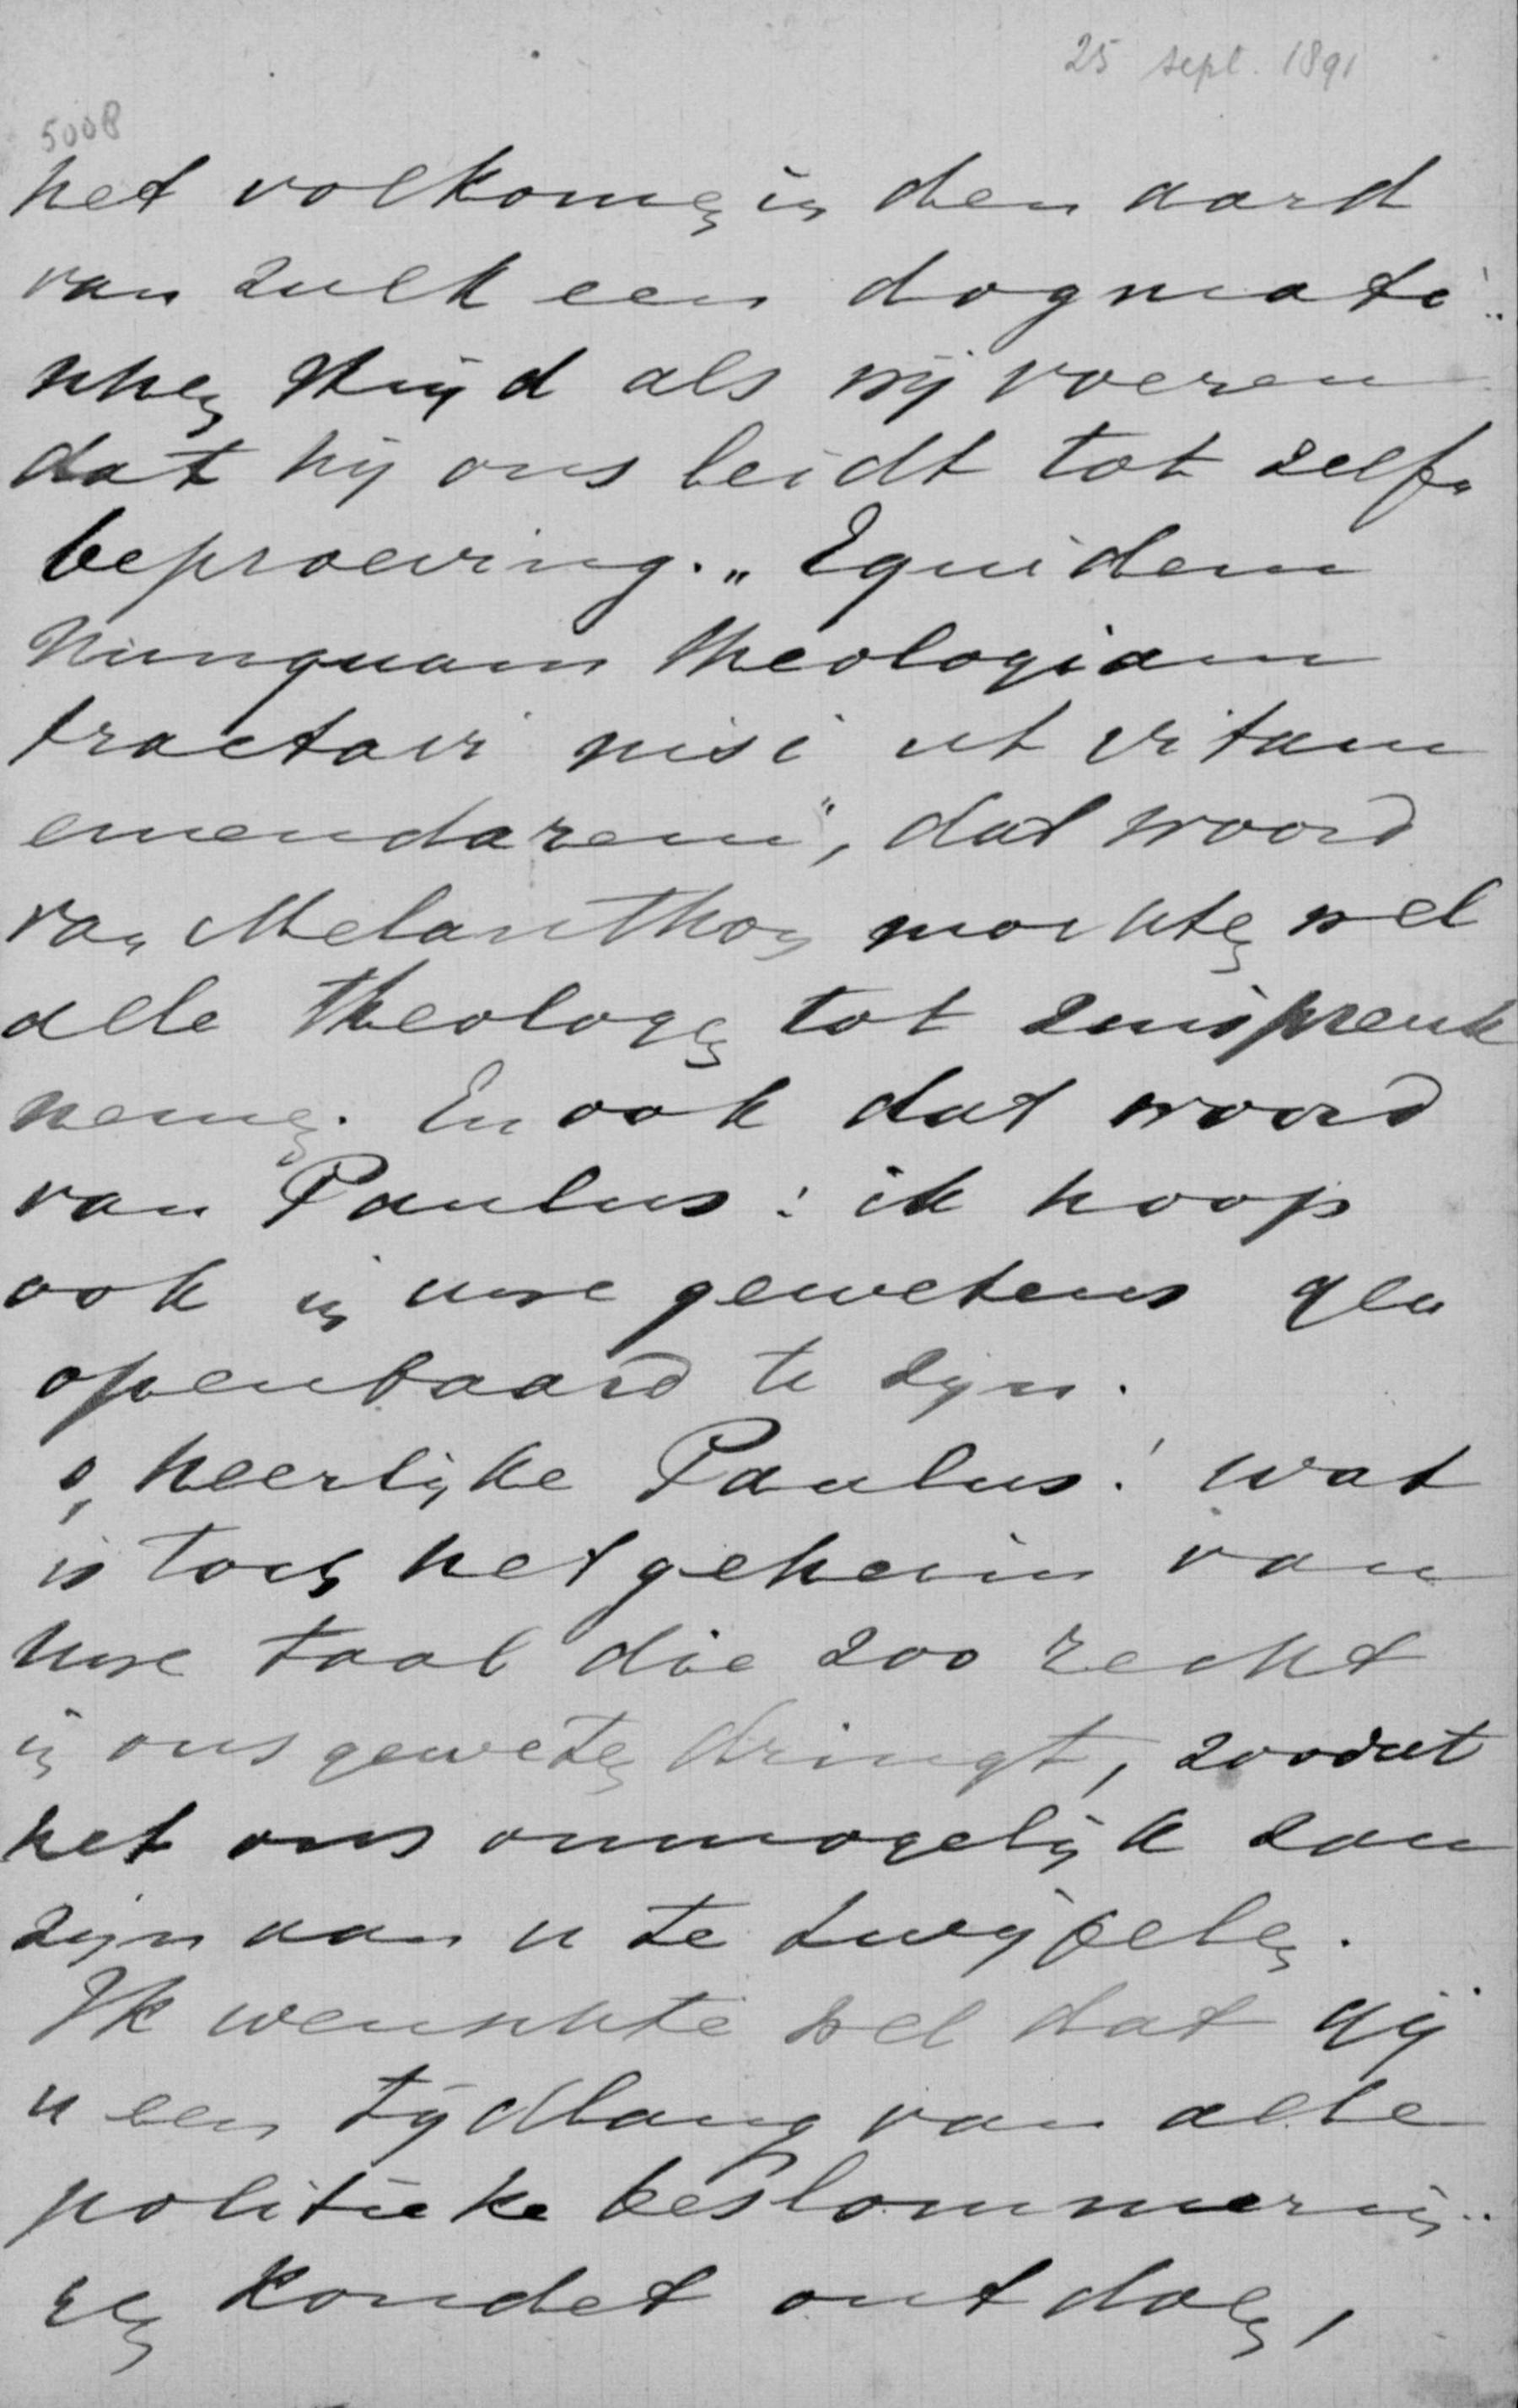 25 sept. 1891
5008
het volkomen in den aard
van zulk een dogmati-
schen strijd als wij voeren
dat hij ons leidt tot zelf-
beproeving. „Equidem
nunquam theologiam
tractavi nisi ut vitam
emendarem", dat woord
van Melanthon mochten wel
alle theologen tot zinspreuk
nemen. En ook dat woord
van Paulus: ik hoop
ook in uwe gewetens ge-
openbaard te zijn.
o, heerlijke Paulus! wat
is toch het geheim van
uwe taal die zoo recht
in ons geweten dringt, zoodat
het ons onmogelijk zou
zijn aan u te twijfelen.
Ik wenschte wel dat gij
u een tijdlang van alle
politieke beslommerin-
gen kondet ontdoen,